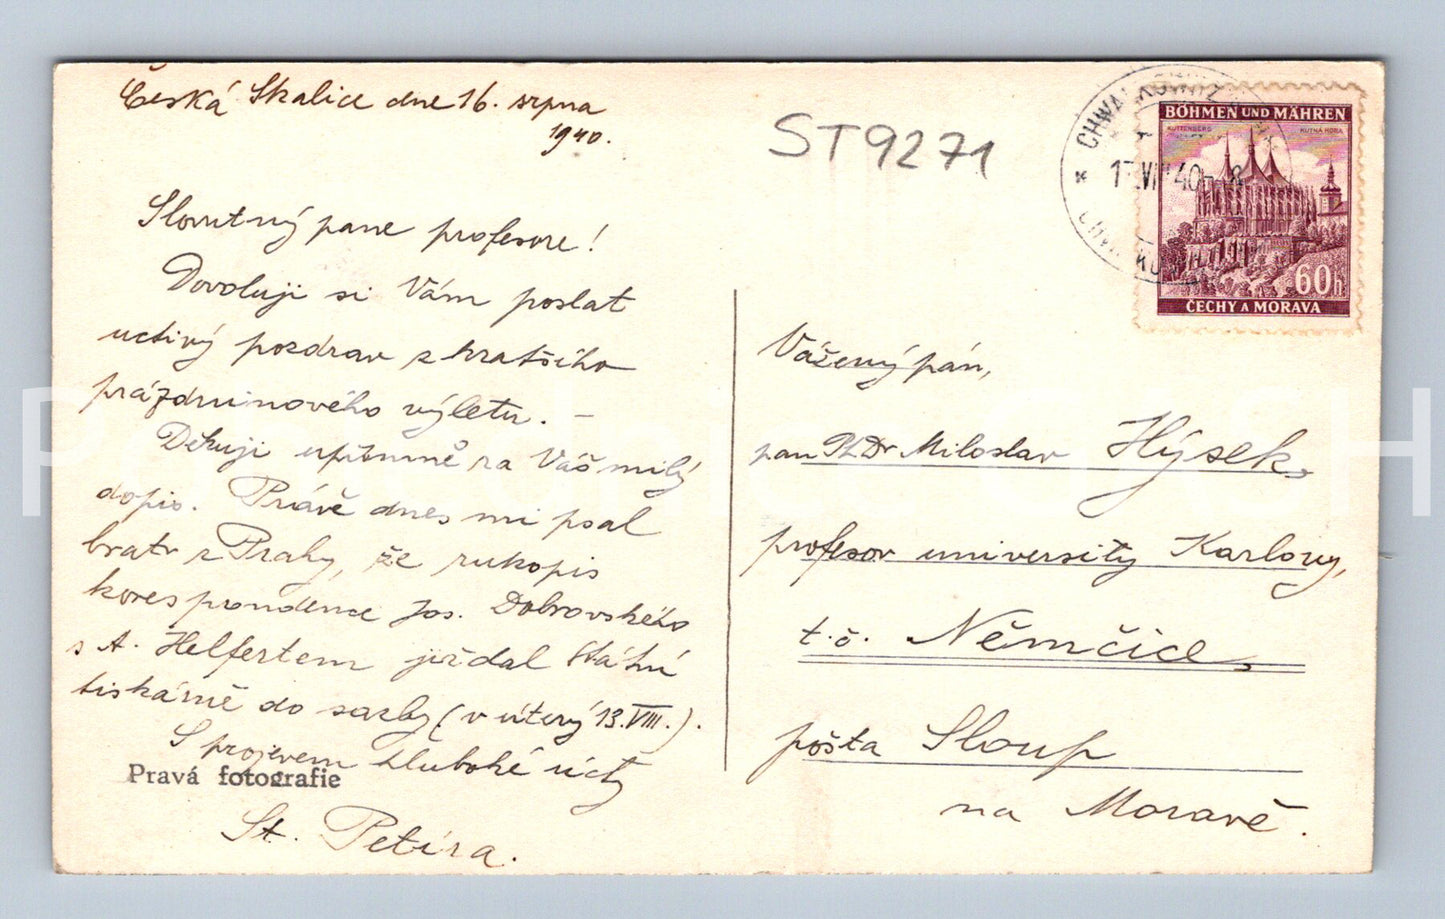 Česká Skalice dne 16. srpna
1940.
Slovutný pane profesore!
Dovoluji si Vám poslat
uctivý pozdrav z kratšího
prázdninového výletu. –
Děkuji upřímně za Váš milý
dopis. Právě dnes mi psal
bratr z Prahy, že rukopis
korespondence Jos. Dobrovského
s A. Helfertem již dal Státní
tiskárně do sazby (v úterý 13. VIII.).
S projevem hluboké úcty
Pravá fotografie
St. Petíra.
ST9271
CHWALKOWITZ
.VIII.40
BÖHMEN UND MÄHREN
KUTTENBERG KUTNÁ HORA
60h
ČECHY A MORAVA
Vážený pán,
pan PhDr Miloslav Hýsek,
profesor university Karlovy,
t. č. Němčice,
pošta Sloup
na Moravě.